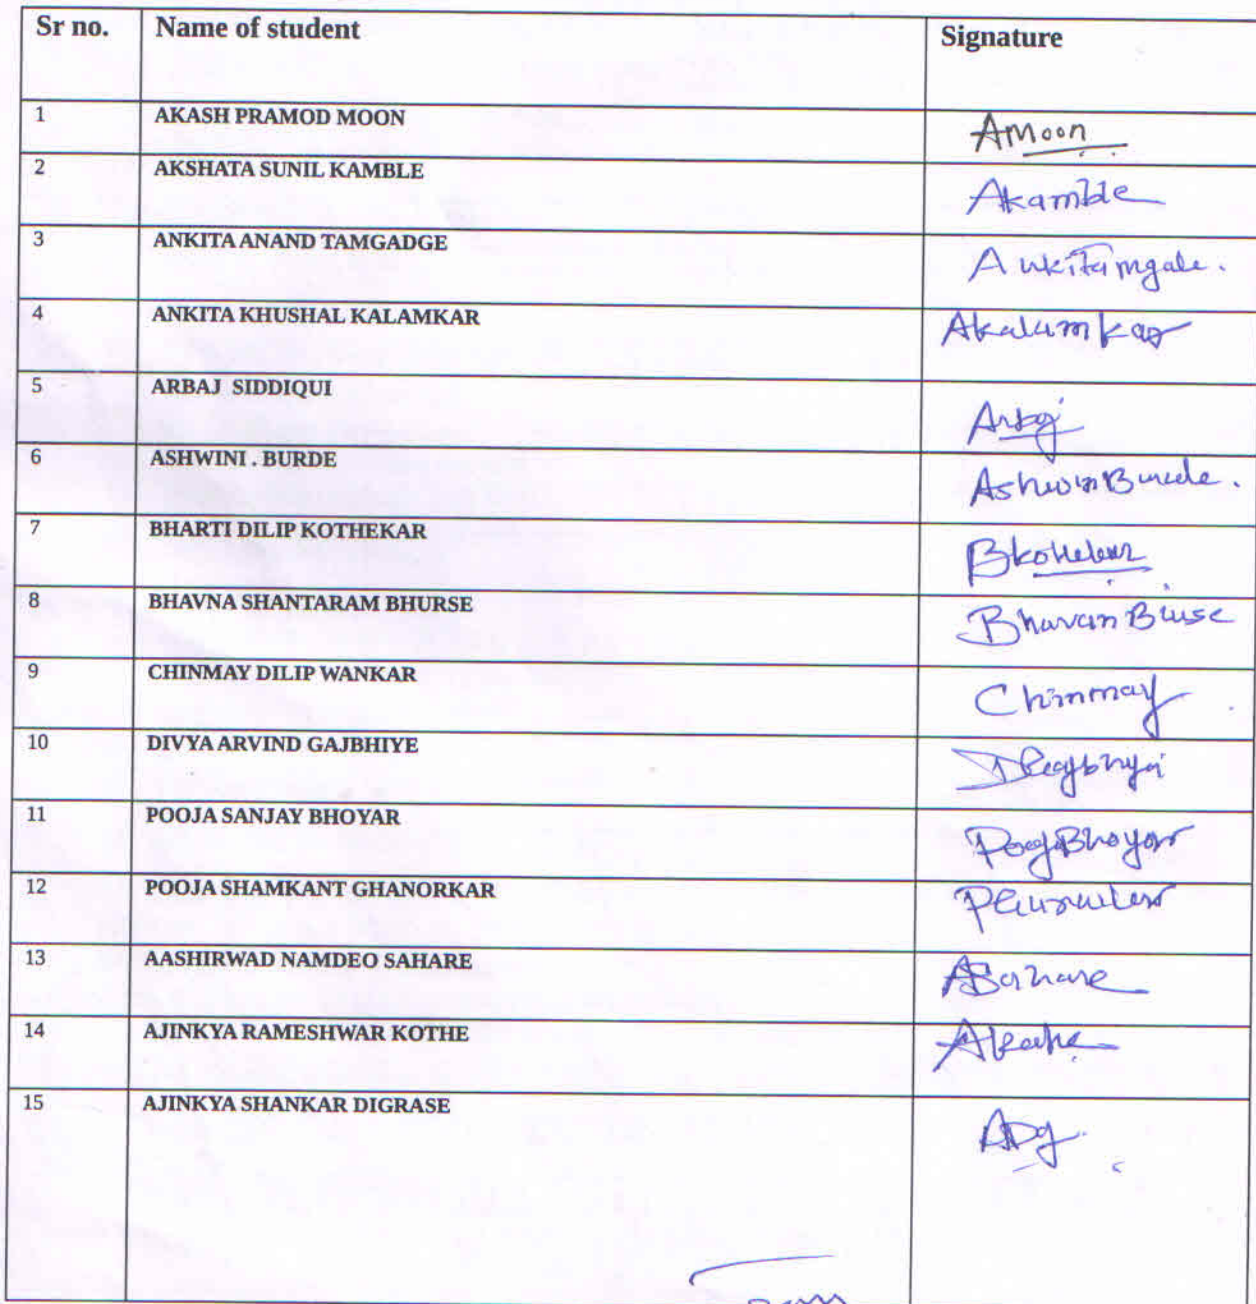 Sr no. Name of student Signature
1 AKASH PRAMOD MOON AMoon
2 AKSHATA SUNIL KAMBLE Akamble
3 ANKITA ANAND TAMGADGE
4 ANKITA KHUSHAL KALAMKAR Akalamkar
5 ARBAJ SIDDIQUI Arbaj
6 ASHWINI . BURDE
7 BHARTI DILIP KOTHEKAR
8 BHAVNA SHANTARAM BHURSE
9 CHINMAY DILIP WANKAR Chinmay
10 DIVYA ARVIND GAJBHIYE
11 POOJA SANJAY BHOYAR
12 POOJA SHAMKANT GHANORKAR
13 AASHIRWAD NAMDEO SAHARE ASahare
14 AJINKYA RAMESHWAR KOTHE
15 AJINKYA SHANKAR DIGRASE